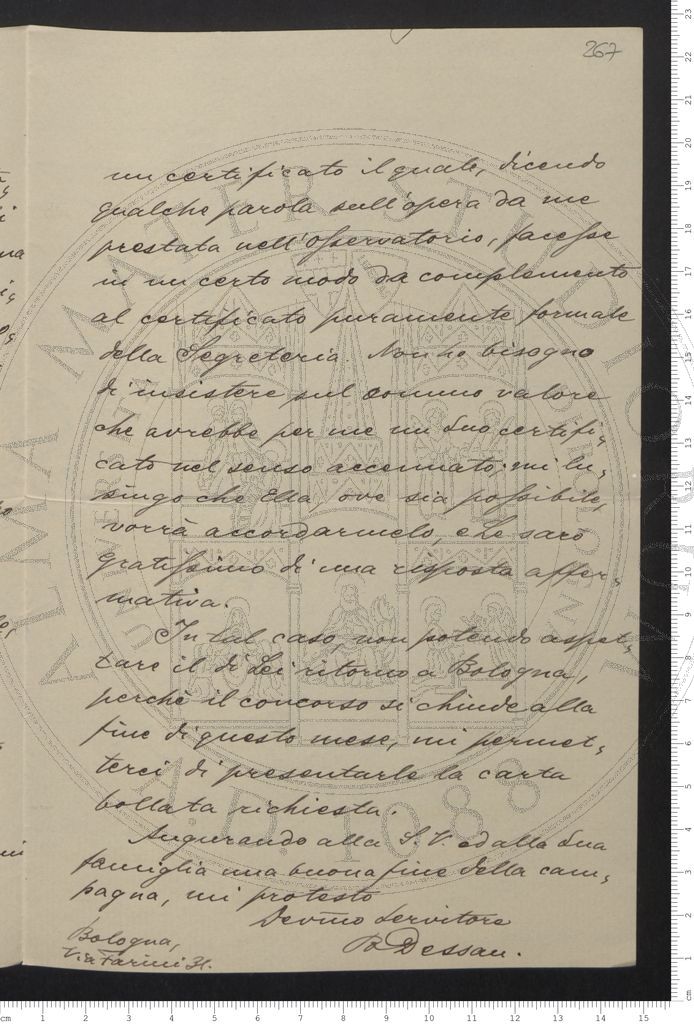 267
un certificato il quale, dicendo
qualche parola sull'opera da me
prestata nell'osservatorio, facesse
in un certo modo da complemento
al certificato puramente formale
della Segreteria. Non ho bisogno
di insistere sul sommo valore
che avrebbe per me un Suo certifi-
cato nel senso accennato; mi lu-
singo che Ella ove sia possibile,
vorrà accordarmelo, e le sarò
gratissimo di una risposta affer-
mativa.
In tal caso, non potendo aspet-
tare il di Lei ritorno a Bologna,
perchè il concorso si chiude alla
fine di questo mese, mi permet-
terei di presentarle la carta
bollata richiesta.
Augurando alla S. V. ed alla Sua
famiglia una buona fine della cam-
pagna, mi protesto
Devmo Servitore
B Dessau.
Bologna,
Via Farini 31.
ALMA MATER STUDIORUM
A.D. 1088